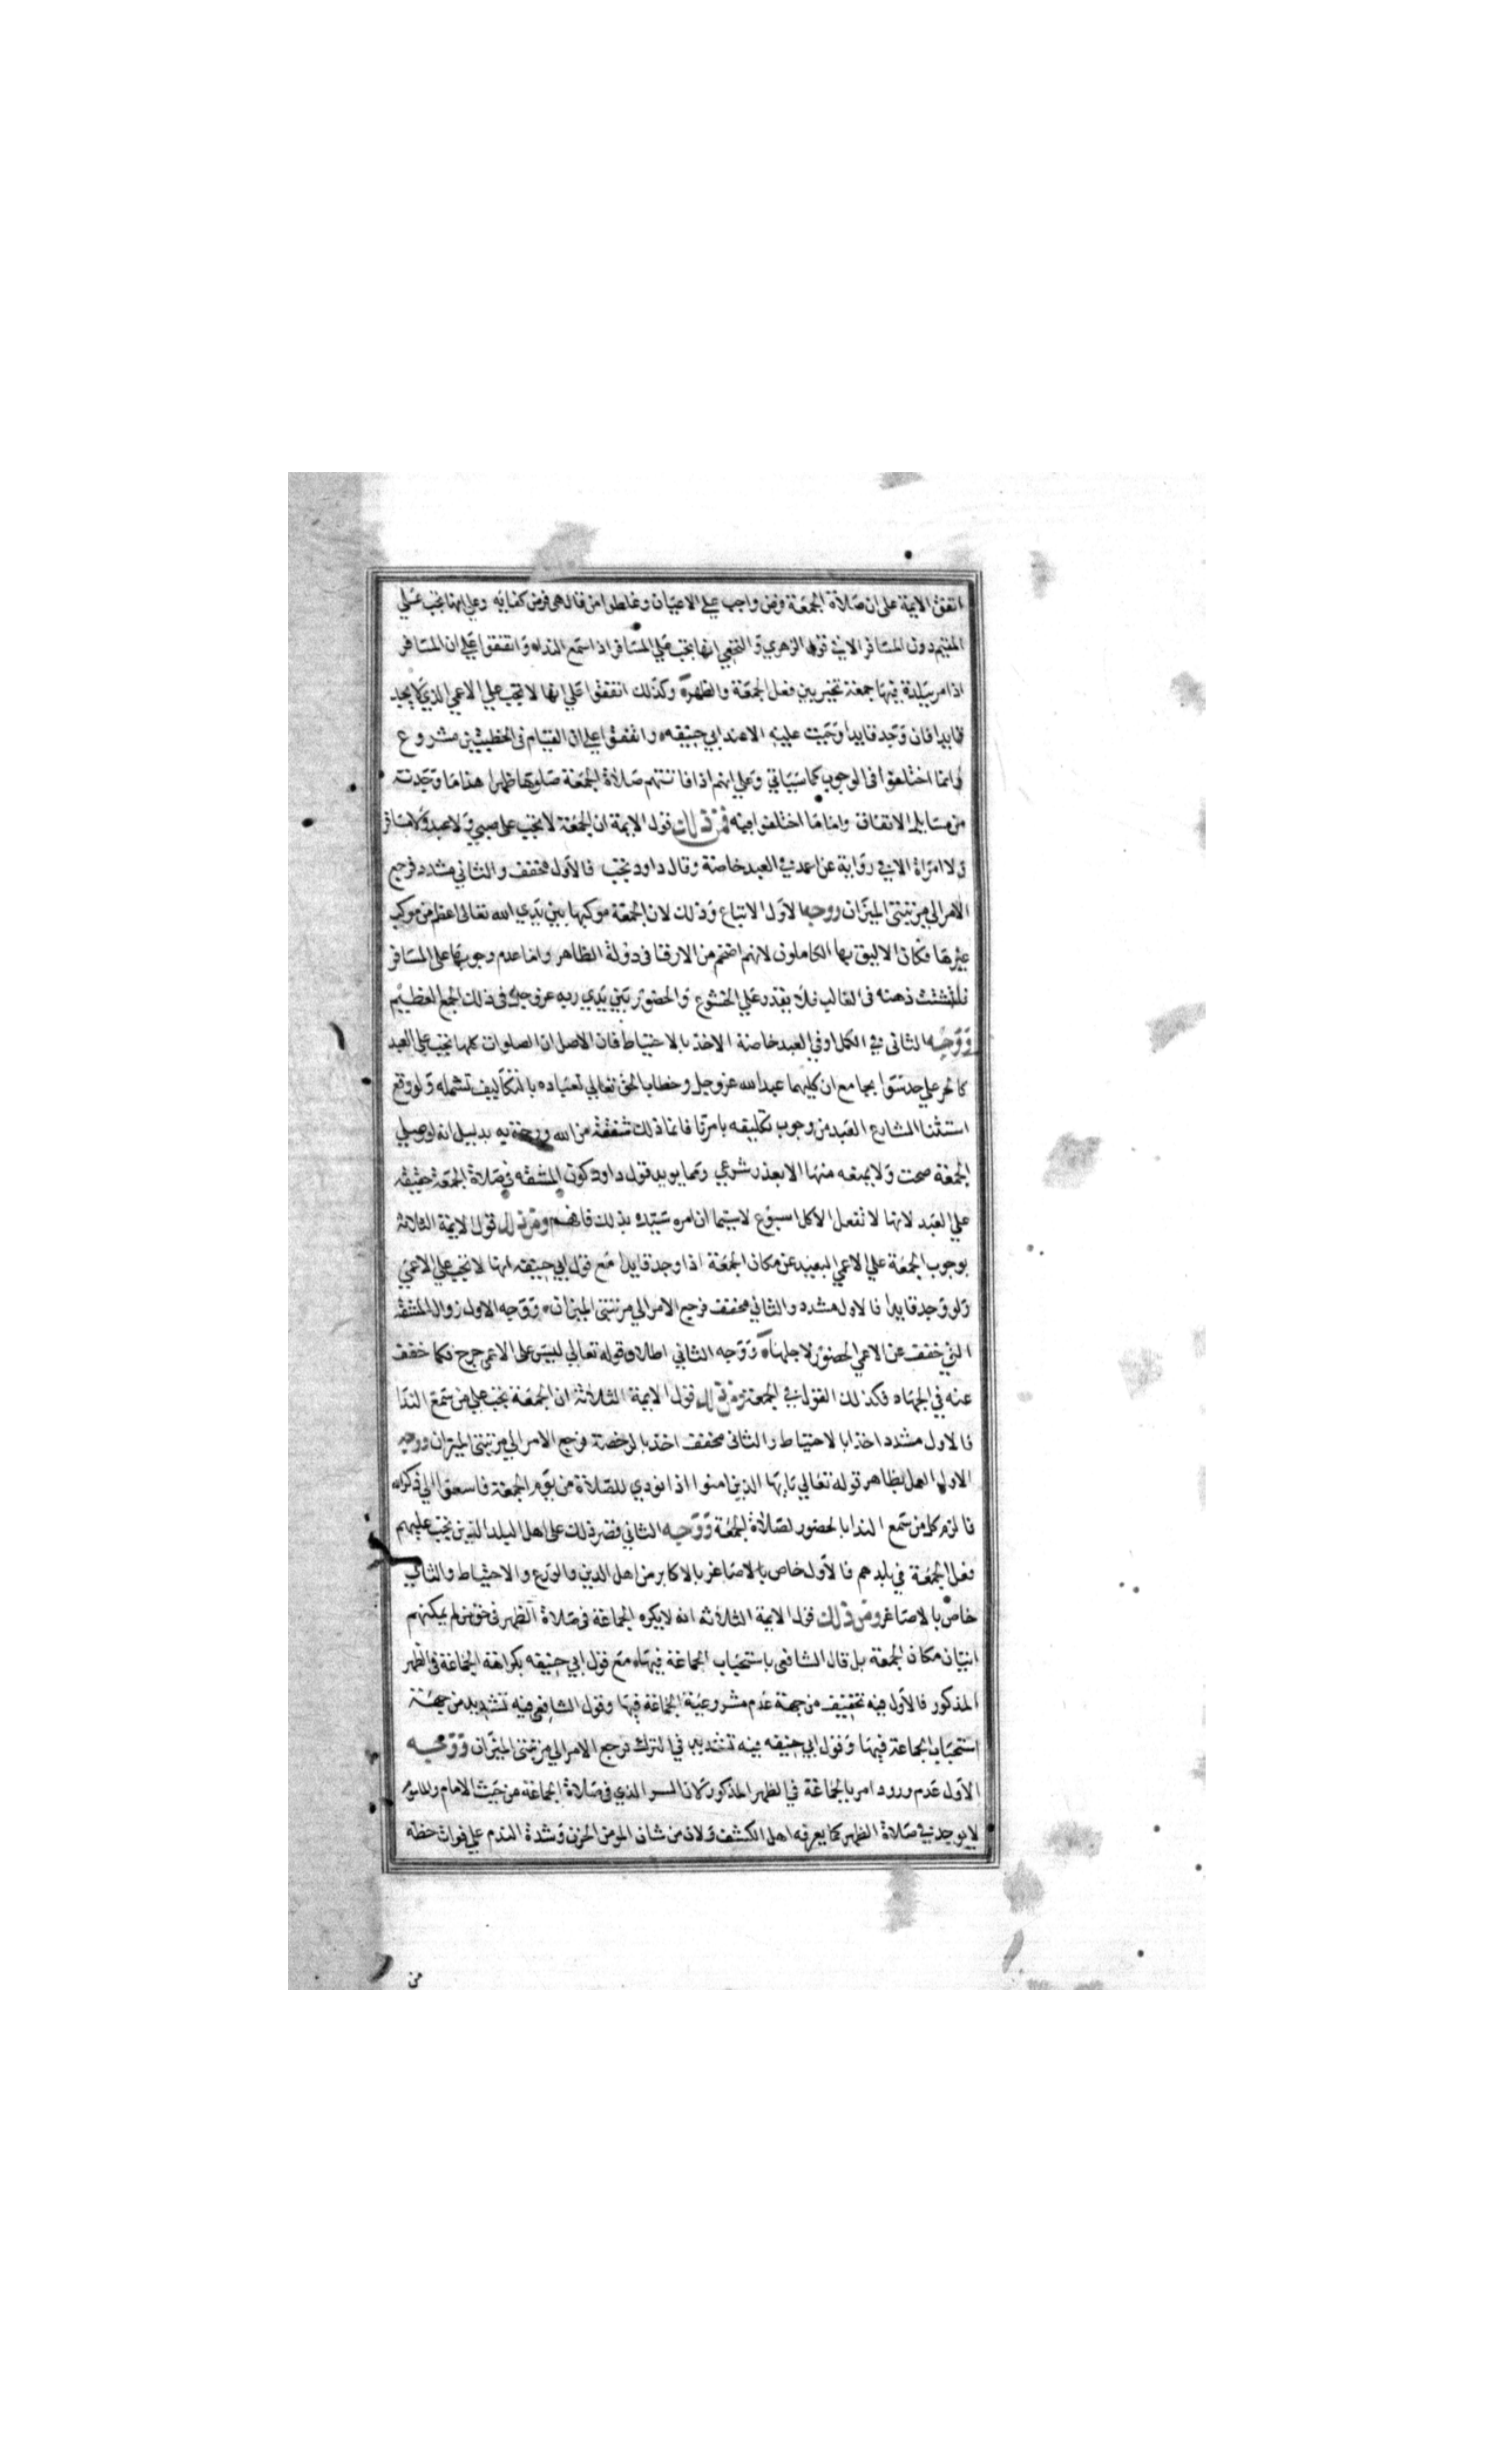 اتفق الايمة على ان صلاة الجمعة فرض واجب علي الاعيان وغلطوا من قال هى فرض كفايه وعلي انها تجب على
المقيم دون المسافر الا في قول الزهري والنخعي انها تجب علي المسافر اذا سمع النداء واتفقوا علي ان المسافر
اذا مر ببلدة فيها جمعة تخير بين فعل الجمعة والظهر وكذلك اتفقوا علي انها لا تجب علي الاعمي الذي لا يجد
قايدا فان وجد قايدا وجبت عليه الا عند ابي حنيفه واتفقوا علي ان القيام فى الخطبتين مشروع
وانما اختلفوا فى الوجوب كما سياتي وعلي انهم اذا فاتتهم صلاة الجمعة صلوها ظهرا هذا ما وجدته
من مسايل الاتفاق واما ما اختلفوا فيه فمن ذلك قول الايمة ان الجمعة لا تجب على صبي ولا عبد ولا مسافر
ولا امراة الا في رواية عن احمد في العبد خاصة وقال داود تجب فالاول مخفف والثاني مشدد فرجع
الامر الي مرتبتى الميزان ووجه الاول الاتباع وذلك لان الجمعة موكبها بين يدي الله تعالى اعظم من موكب
غيرها فكان الاليق بها الكاملون لانهم اضخم من الارقا فى دولة الظاهر واما عدم وجوبها على المسافر
فلتشتت ذهنه فى الغالب فلا يقدر علي الخشوع والحضور بين يدي ربه عز وجل فى ذلك الجمع العظيم
ووجه الثانى في الكل او في العبد خاصة الاخذ بالاحتياط فان الاصل ان الصلوات كلها تجب على العبد
كالحر علي حد سوا بجامع ان كليهما عبد الله عز وجل وخطاب الحق تعالي لعباده بالتكاليف تشمله ولو وقع
استثنا الشارع العبد من وجوب تكليفه بامر ما فانما ذلك شفقة من الله ورحمة به بدليل انه لو صلي
الجمعة صحت ولا يمنعه منها الا بعذر شرعي ومما يويد قول داود كون المشقه في صلاة الجمعة خفيفة
علي العبد لانها لا تفعل الا كل اسبوع لا سيما ان امره سيده بذلك فافهم ومن ذلك قول الايمة الثلاثة
بوجوب الجمعة علي الاعمي البعيد عن مكان الجمعة اذا وجد قايدا مع قول ابي حنيفه انها لا تجب علي الاعمي
ولو وجد قايدا فالاول مشدد والثاني مخفف فرجع الامر الي مرتبتى الميزان ووجه الاول زوال المشقة
التي خفف عن الاعمي الحضور لاجلها ووجه الثاني اطلاق قوله تعالي ليس على الاعمى حرج فكما خفف
عنه في الجهاد فكذلك القول في الجمعة ومن ذلك قول الايمة الثلاثة ان الجمعة تجب علي من سمع الندا
فالاول مشدد اخذا بالاحتياط والثانى مخفف اخذ بالرخصة فرجع الامر الي مرتبتى الميزان ووجه
الاول العمل بظاهر قوله تعالي يايها الذين امنوا اذا نودي للصلاة من يوم الجمعة فاسعوا الي ذكر الله
فالزم كل من سمع الندا بالحضور لصلاة الجمعة ووجه الثاني قصر ذلك على اهل البلد الذين تجب عليهم
فعل الجمعة في بلدهم فالاول خاص بالاصاغر بالاكابر من اهل الدين والورع والاحتياط والثاني
خاص بالاصاغر ومن ذلك قول الايمة الثلاثه انه لا يكره الجماعة فى صلاة الظهر فى حق من لم يمكنهم
اتيان مكان الجمعة بل قال الشافعى باستحباب الجماعة فيها مع قول ابي حنيفه بكراهة الجماعة فى الظهر
المذكور فالاول فيه تخفيف من جهة عدم مشروعية الجماعة فيها وقول الشافعى فيه تشديد من جهة
استحباب الجماعة فيها وقول ابي حنيفه فيه تشديد في الترك فرجع الامر الي مرتبتى الميزان ووجه
الاول عدم ورود امر بالجماعة في الظهر المذكور لان السر الذي فى صلاة الجماعة من حيث الامام والماموم
لا يوجد في صلاة الظهر كما يعرفه اهل الكشف ولان من شان المومن الحزن وشدة الندم علي فوات حظه
من